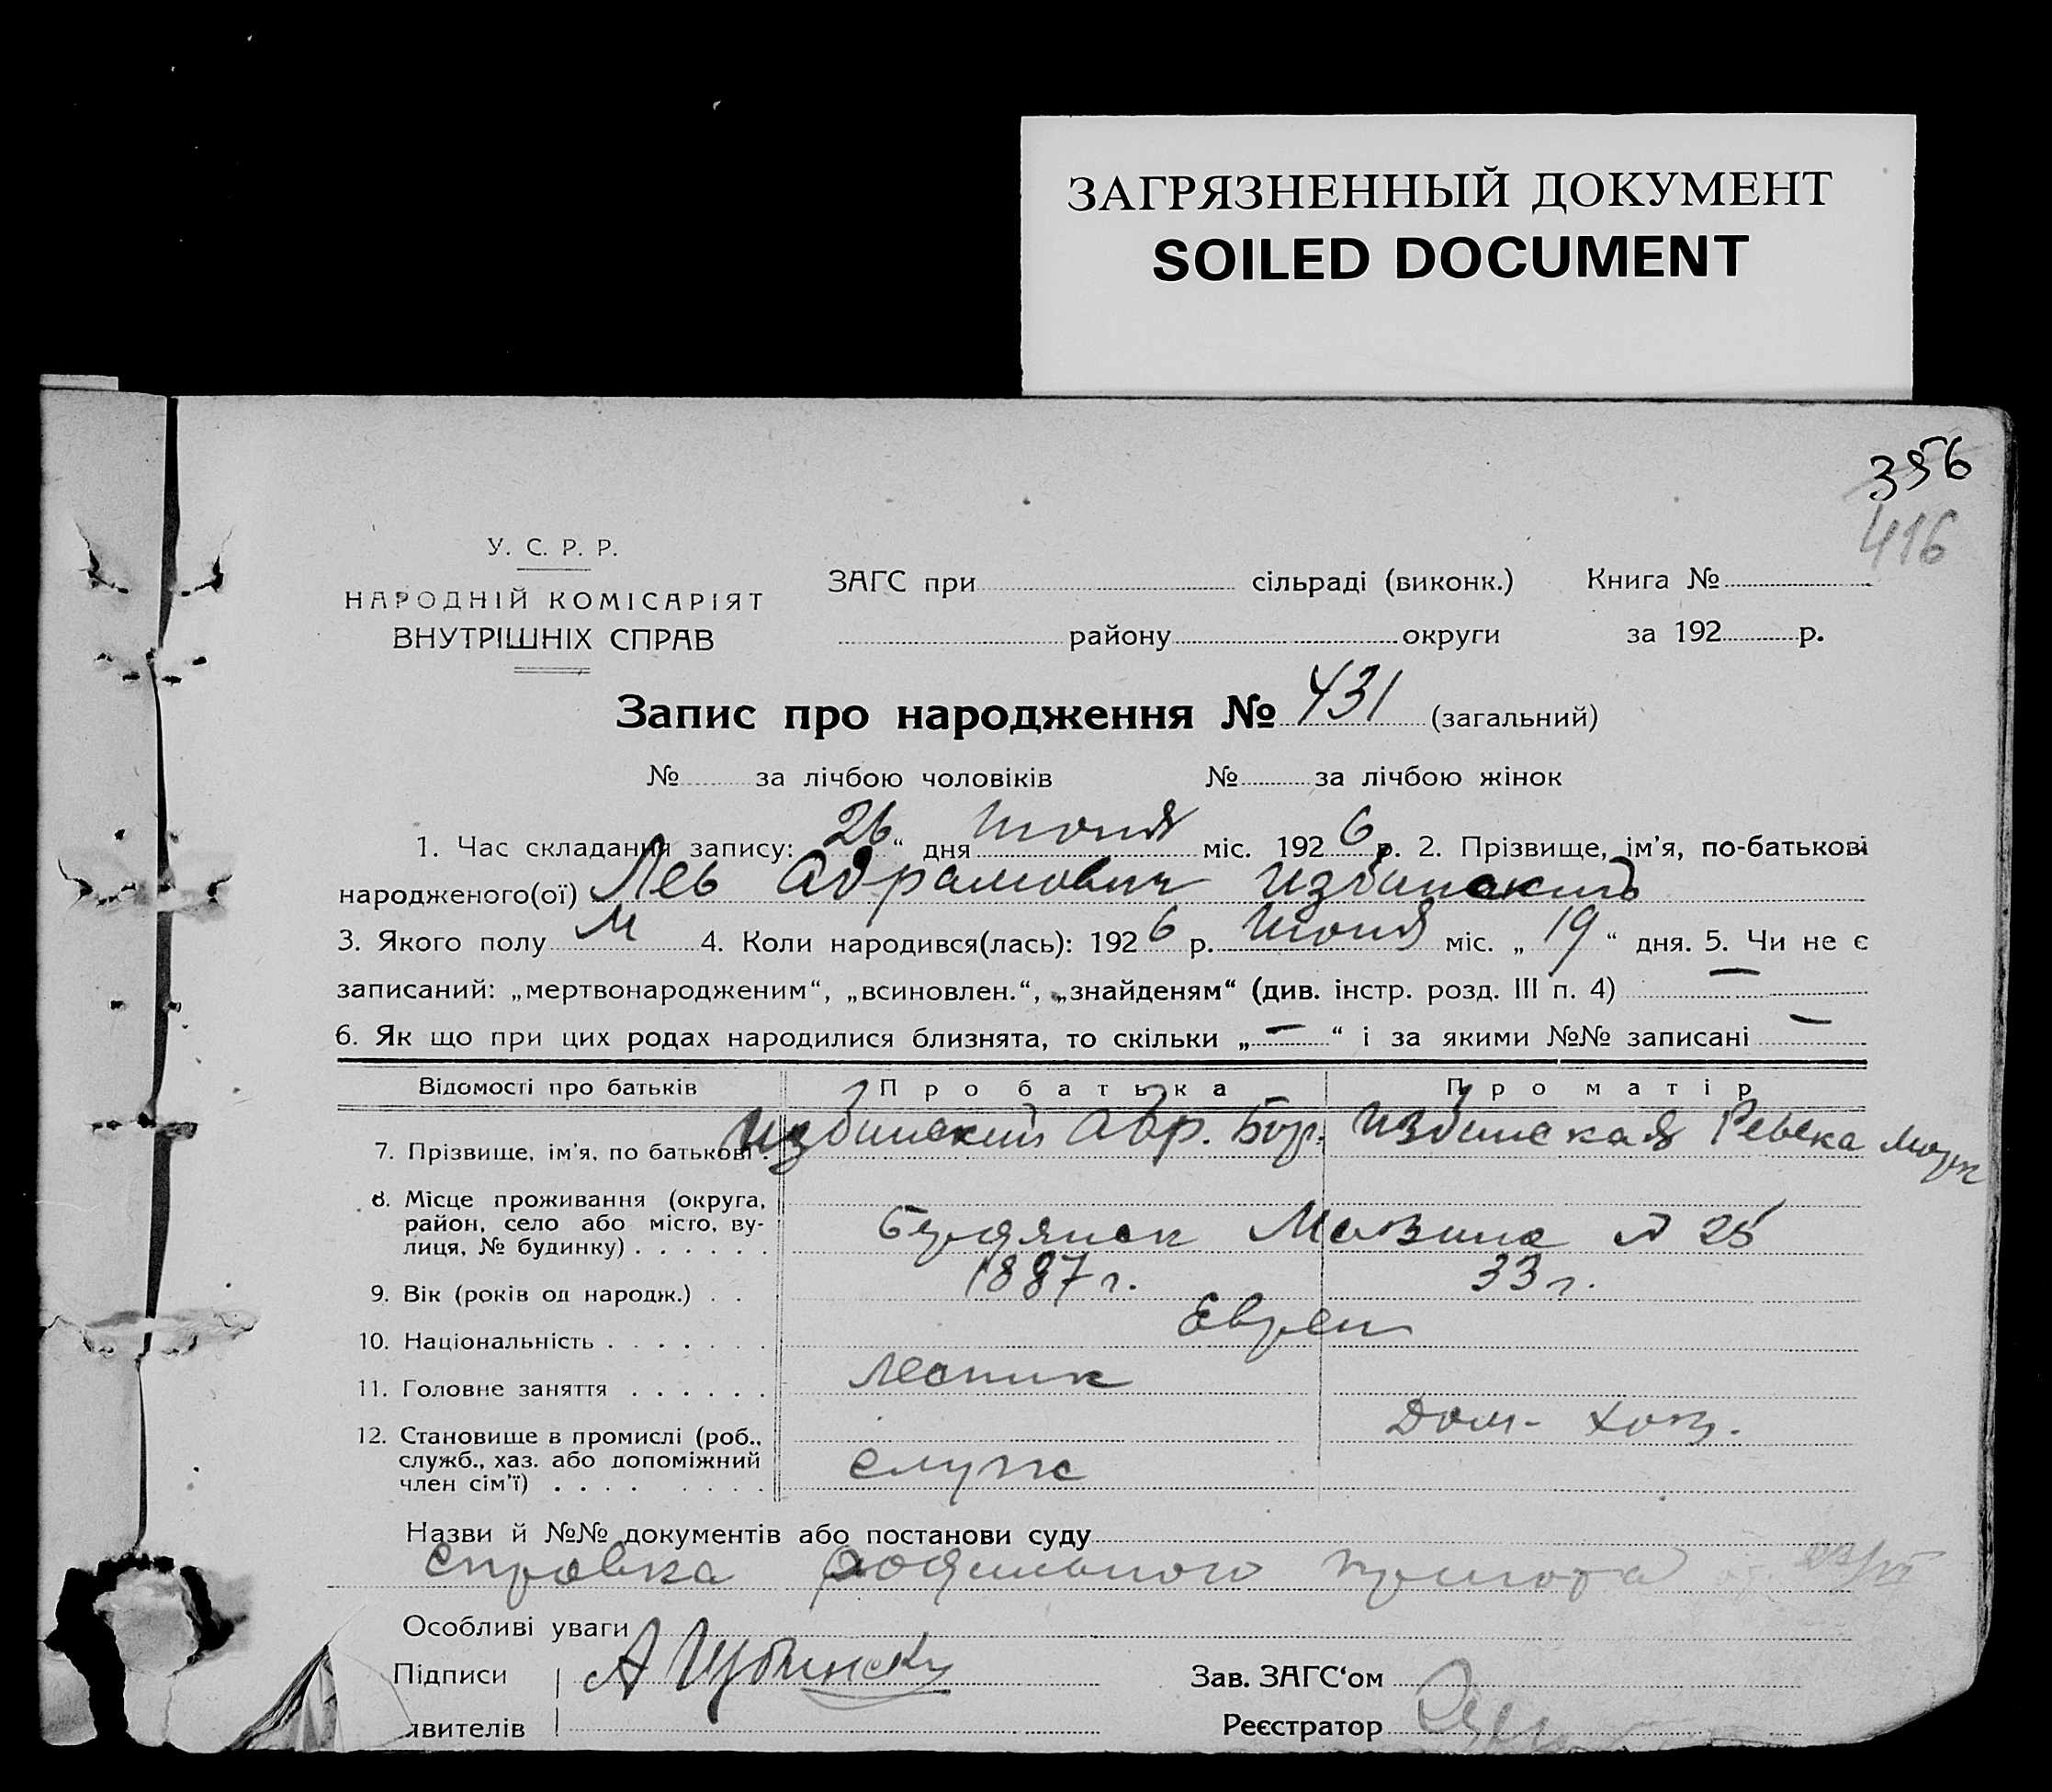 ЗАГРЯЗНЕННЫЙ ДОКУМЕНТ
SOILED DOCUMENT
356
416
У. С. Р. Р.
НАРОДНІЙ КОМІСАРІЯТ
ВНУТРІШНІХ СПРАВ
ЗАГС при сільраді (виконк.) Книга №
району округи за 192 р.
Запис про народження № 431 (загальний)
№ за лічбою чоловіків № за лічбою жінок
1. Час складання запису: 26 “ дня июня міс. 1926 р. 2. Прізвище, ім'я, по-батькові
народженого(ої) Лев Абрамович Избинский
3. Якого полу М 4. Коли народився(лась): 1926 р. июня міс. „ 19 “ дня. 5. Чи не є
записаний: „мертвонародженим“, „всиновлен.“, „знайденям“ (див. інстр. розд. III п. 4) —
6. Як що при цих родах народилися близнята, то скільки „ — “ і за якими №№ записані —
Відомості про батьків Про батька Про матір
7. Прізвище, ім'я, по батькові . Избинский Абр. Бор. Избинская Ревека
8. Місце проживання (округа,
район, село або місто, ву-
лиця, № будинку) . . . . . . Бердянск Мазина № 25
9. Вік (років од народж.) . . 1887 г. 33 г.
10. Національність . . . . . . . Евреи
11. Головне заняття . . . . . .
Дом. хоз.
12. Становище в промислі (роб.,
служб., хаз. або допоміжний
член сім'ї) . . . . . . . . служ
Назви й №№ документів або постанови суду
справка родильного приюта от
Особливі уваги
Підписи А Избински Зав. ЗАГС‘ом
явителів Реєстратор